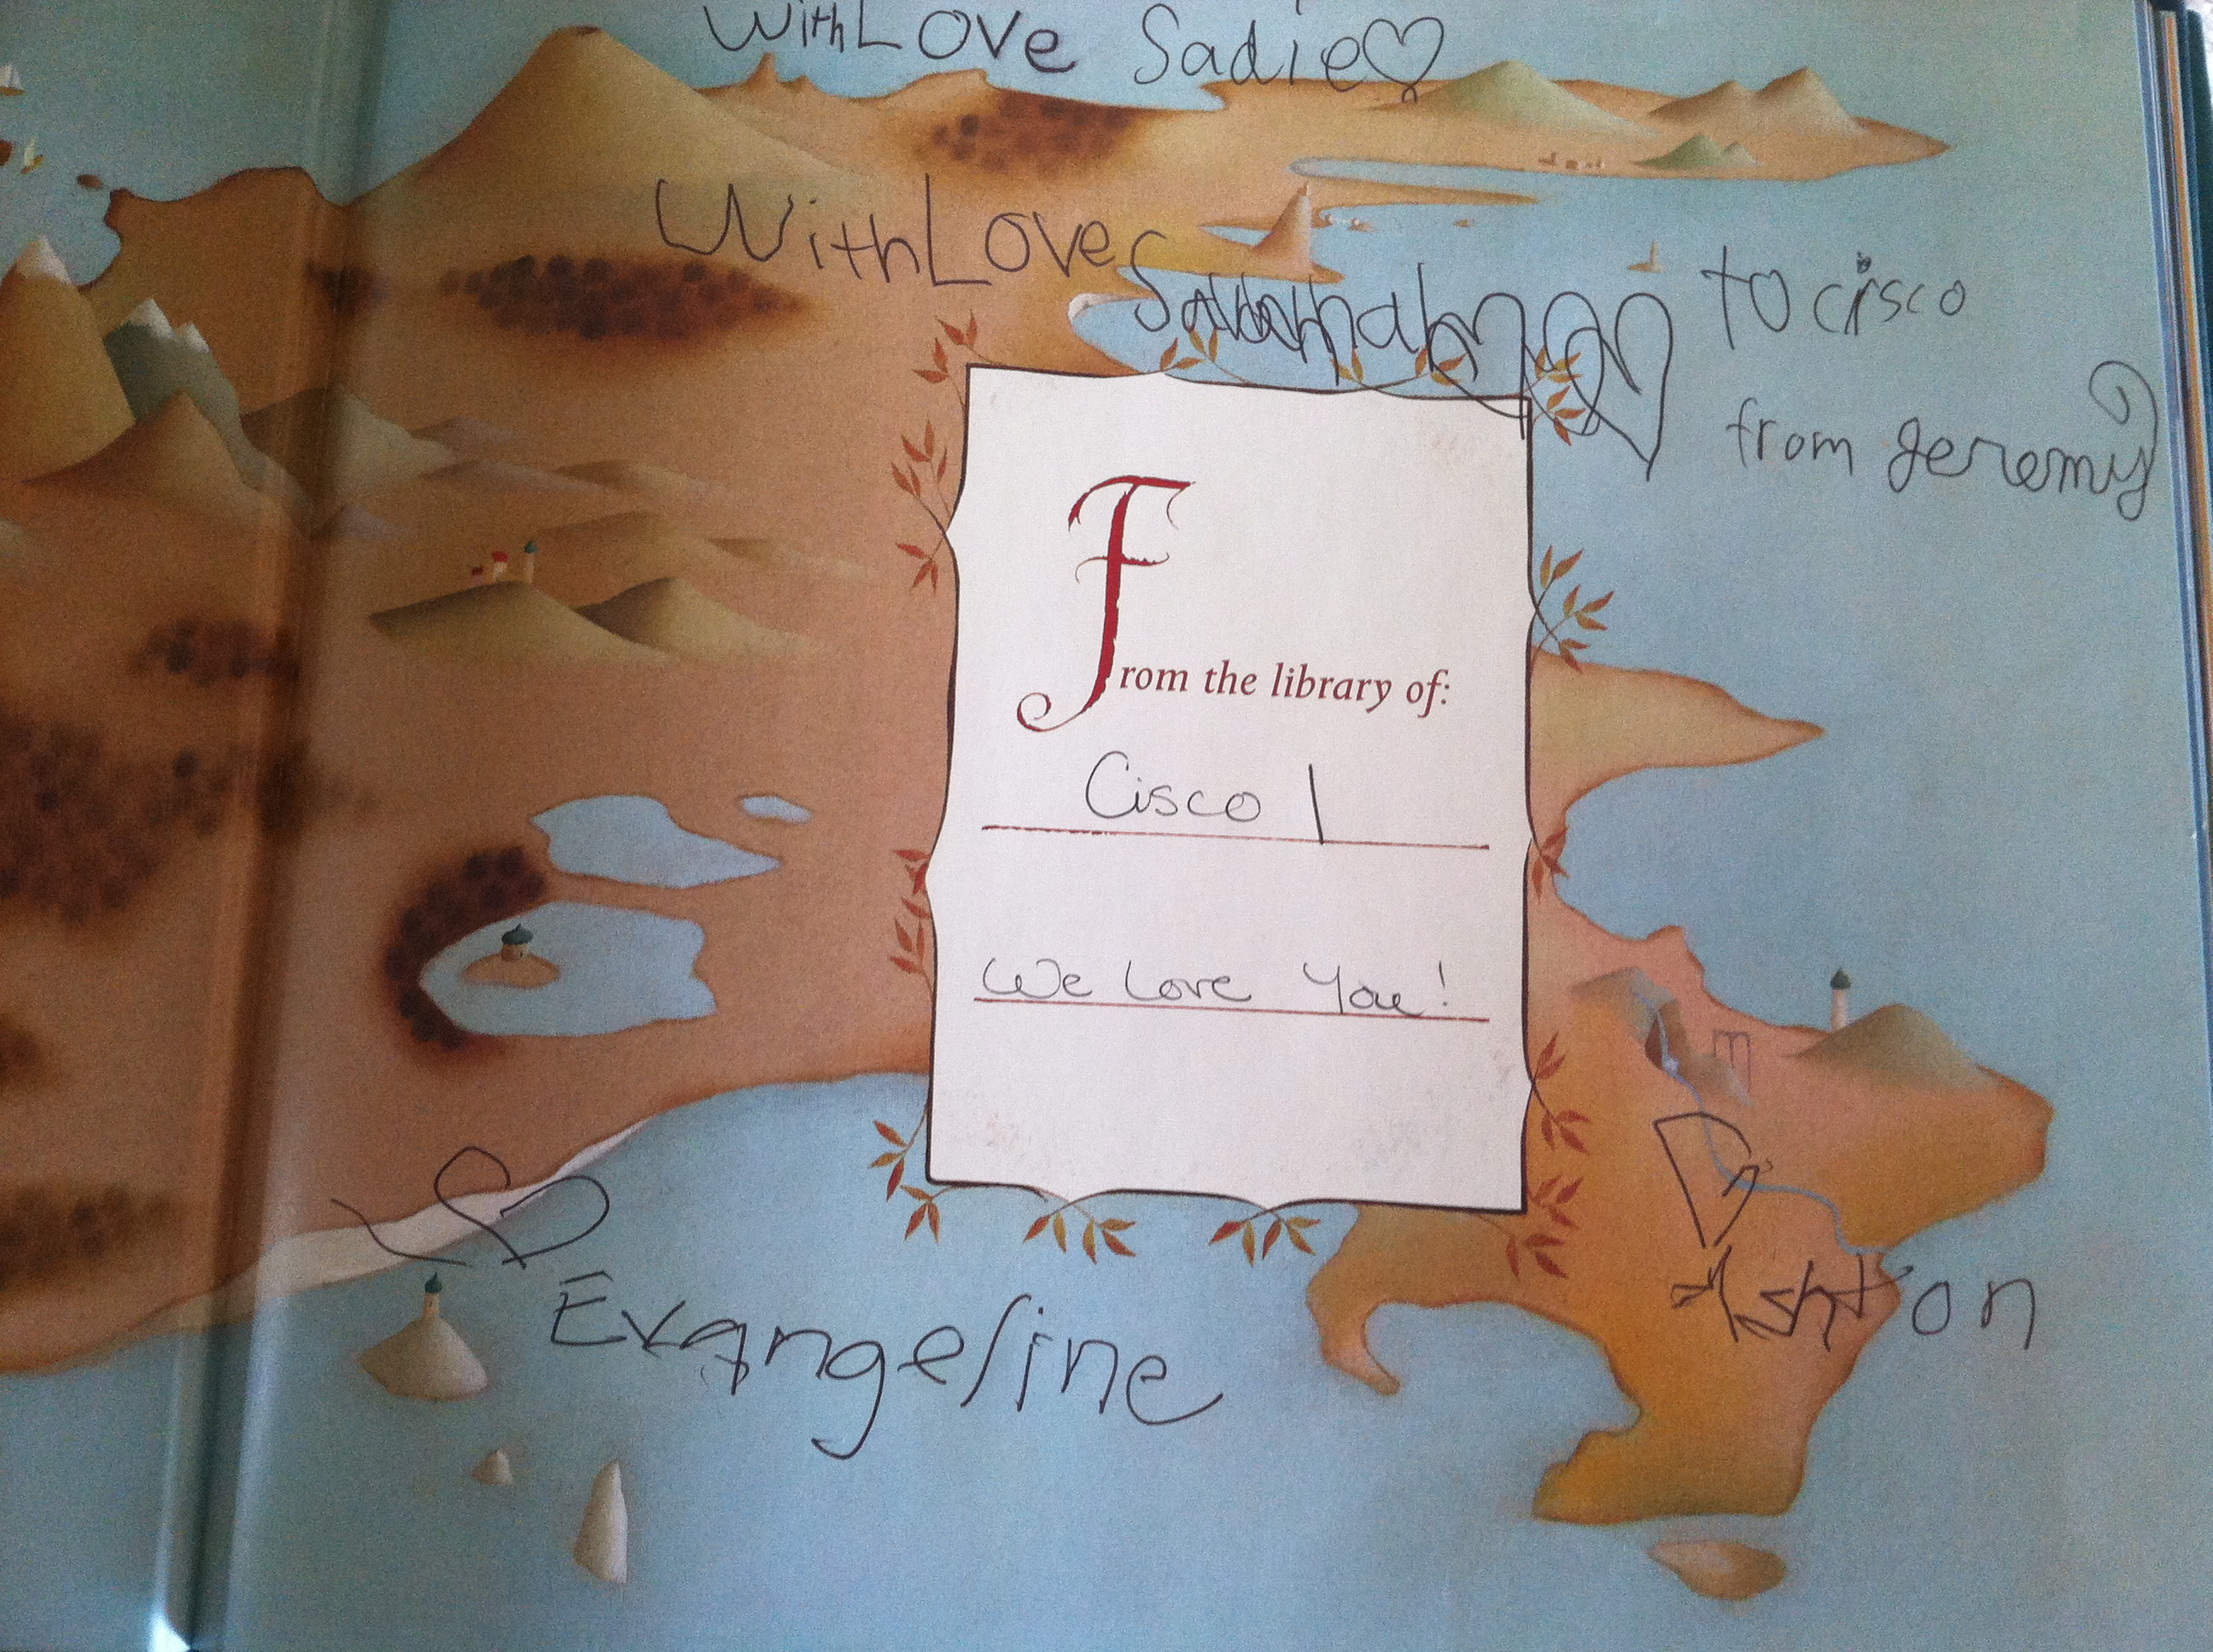 With Love Sadie
With Love
Savannah
to cisco
from jeremy
From the library of:
Cisco
We Love You!
Evangeline
Ashton